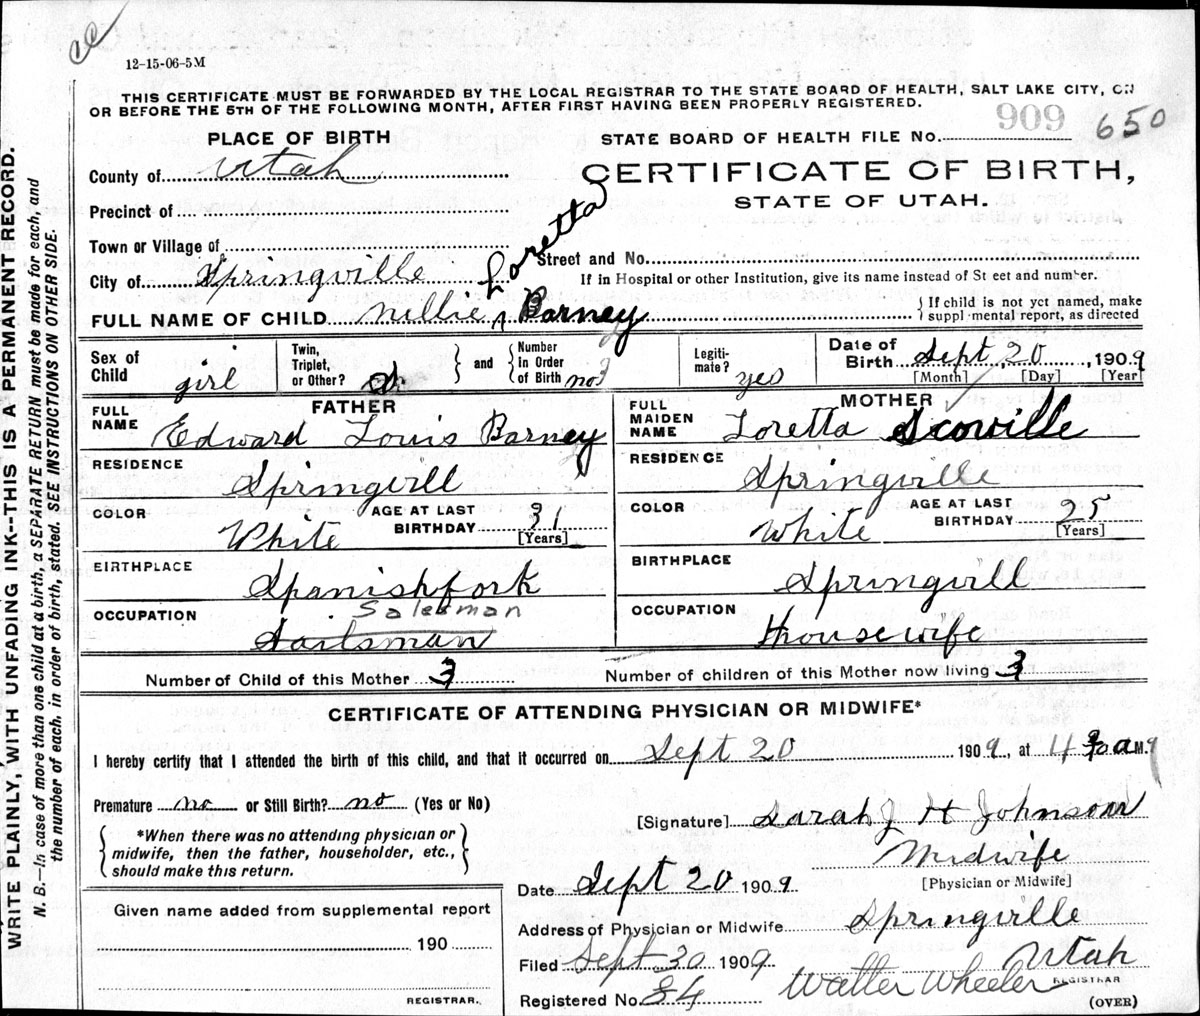 12-15-06-5M
THIS CERTIFICATE MUST BE FORWARDED BY THE LOCAL REGISTRAR TO THE STATE BOARD OF HEALTH, SALT LAKE CITY, ON
OR BEFORE THE 5TH OF THE FOLLOWING MONTH, AFTER FIRST HAVING BEEN PROPERLY REGISTERED.
PLACE OF BIRTH
STATE BOARD OF HEALTH FILE No. 909 650
County of Utah
CERTIFICATE OF BIRTH,
STATE OF UTAH.
Precinct of
Town or Village of
Street and No.
City of Springville
If in Hospital or other Institution, give its name instead of St eet and number.
Loretta
FULL NAME OF CHILD Nellie Barney
{ If child is not yet named, make
suppl mental report, as directed
Sex of Child girl
Twin, Triplet, or Other? } and { Number In Order of Birth no 3
Legiti-mate? yes
Date of Birth Sept 20, 1909
[Month] [Day] [Year]
FATHER
FULL NAME Edward Louis Barney
RESIDENCE Springvill
COLOR White AGE AT LAST BIRTHDAY 31 [Years]
BIRTHPLACE Spanishfork
OCCUPATION Salesman
Sailsman
MOTHER
FULL MAIDEN NAME Loretta Scoville
RESIDENCE Springville
COLOR White AGE AT LAST BIRTHDAY 25 [Years]
BIRTHPLACE Springvill
OCCUPATION Housewife
Number of Child of this Mother 3 Number of children of this Mother now living 3
CERTIFICATE OF ATTENDING PHYSICIAN OR MIDWIFE*
I hereby certify that I attended the birth of this child, and that it occurred on Sept 20 1909, at 4 a M.
Premature no or Still Birth? no (Yes or No)
{ *When there was no attending physician or midwife, then the father, householder, etc., should make this return. }
[Signature] Sarah J H Johnson
Midwife
[Physician or Midwife]
Date Sept 20 1909
Address of Physician or Midwife Springville
Utah
Filed Sept 30 1909
Walter Wheeler REGISTRAR
Registered No. 84
(OVER)
Given name added from supplemental report
190
REGISTRAR.
WRITE PLAINLY, WITH UNFADING INK--THIS IS A PERMANENT RECORD.
N. B.—In case of more than one child at a birth, a SEPARATE RETURN must be made for each, and
the number of each, in order of birth, stated. SEE INSTRUCTIONS ON OTHER SIDE.